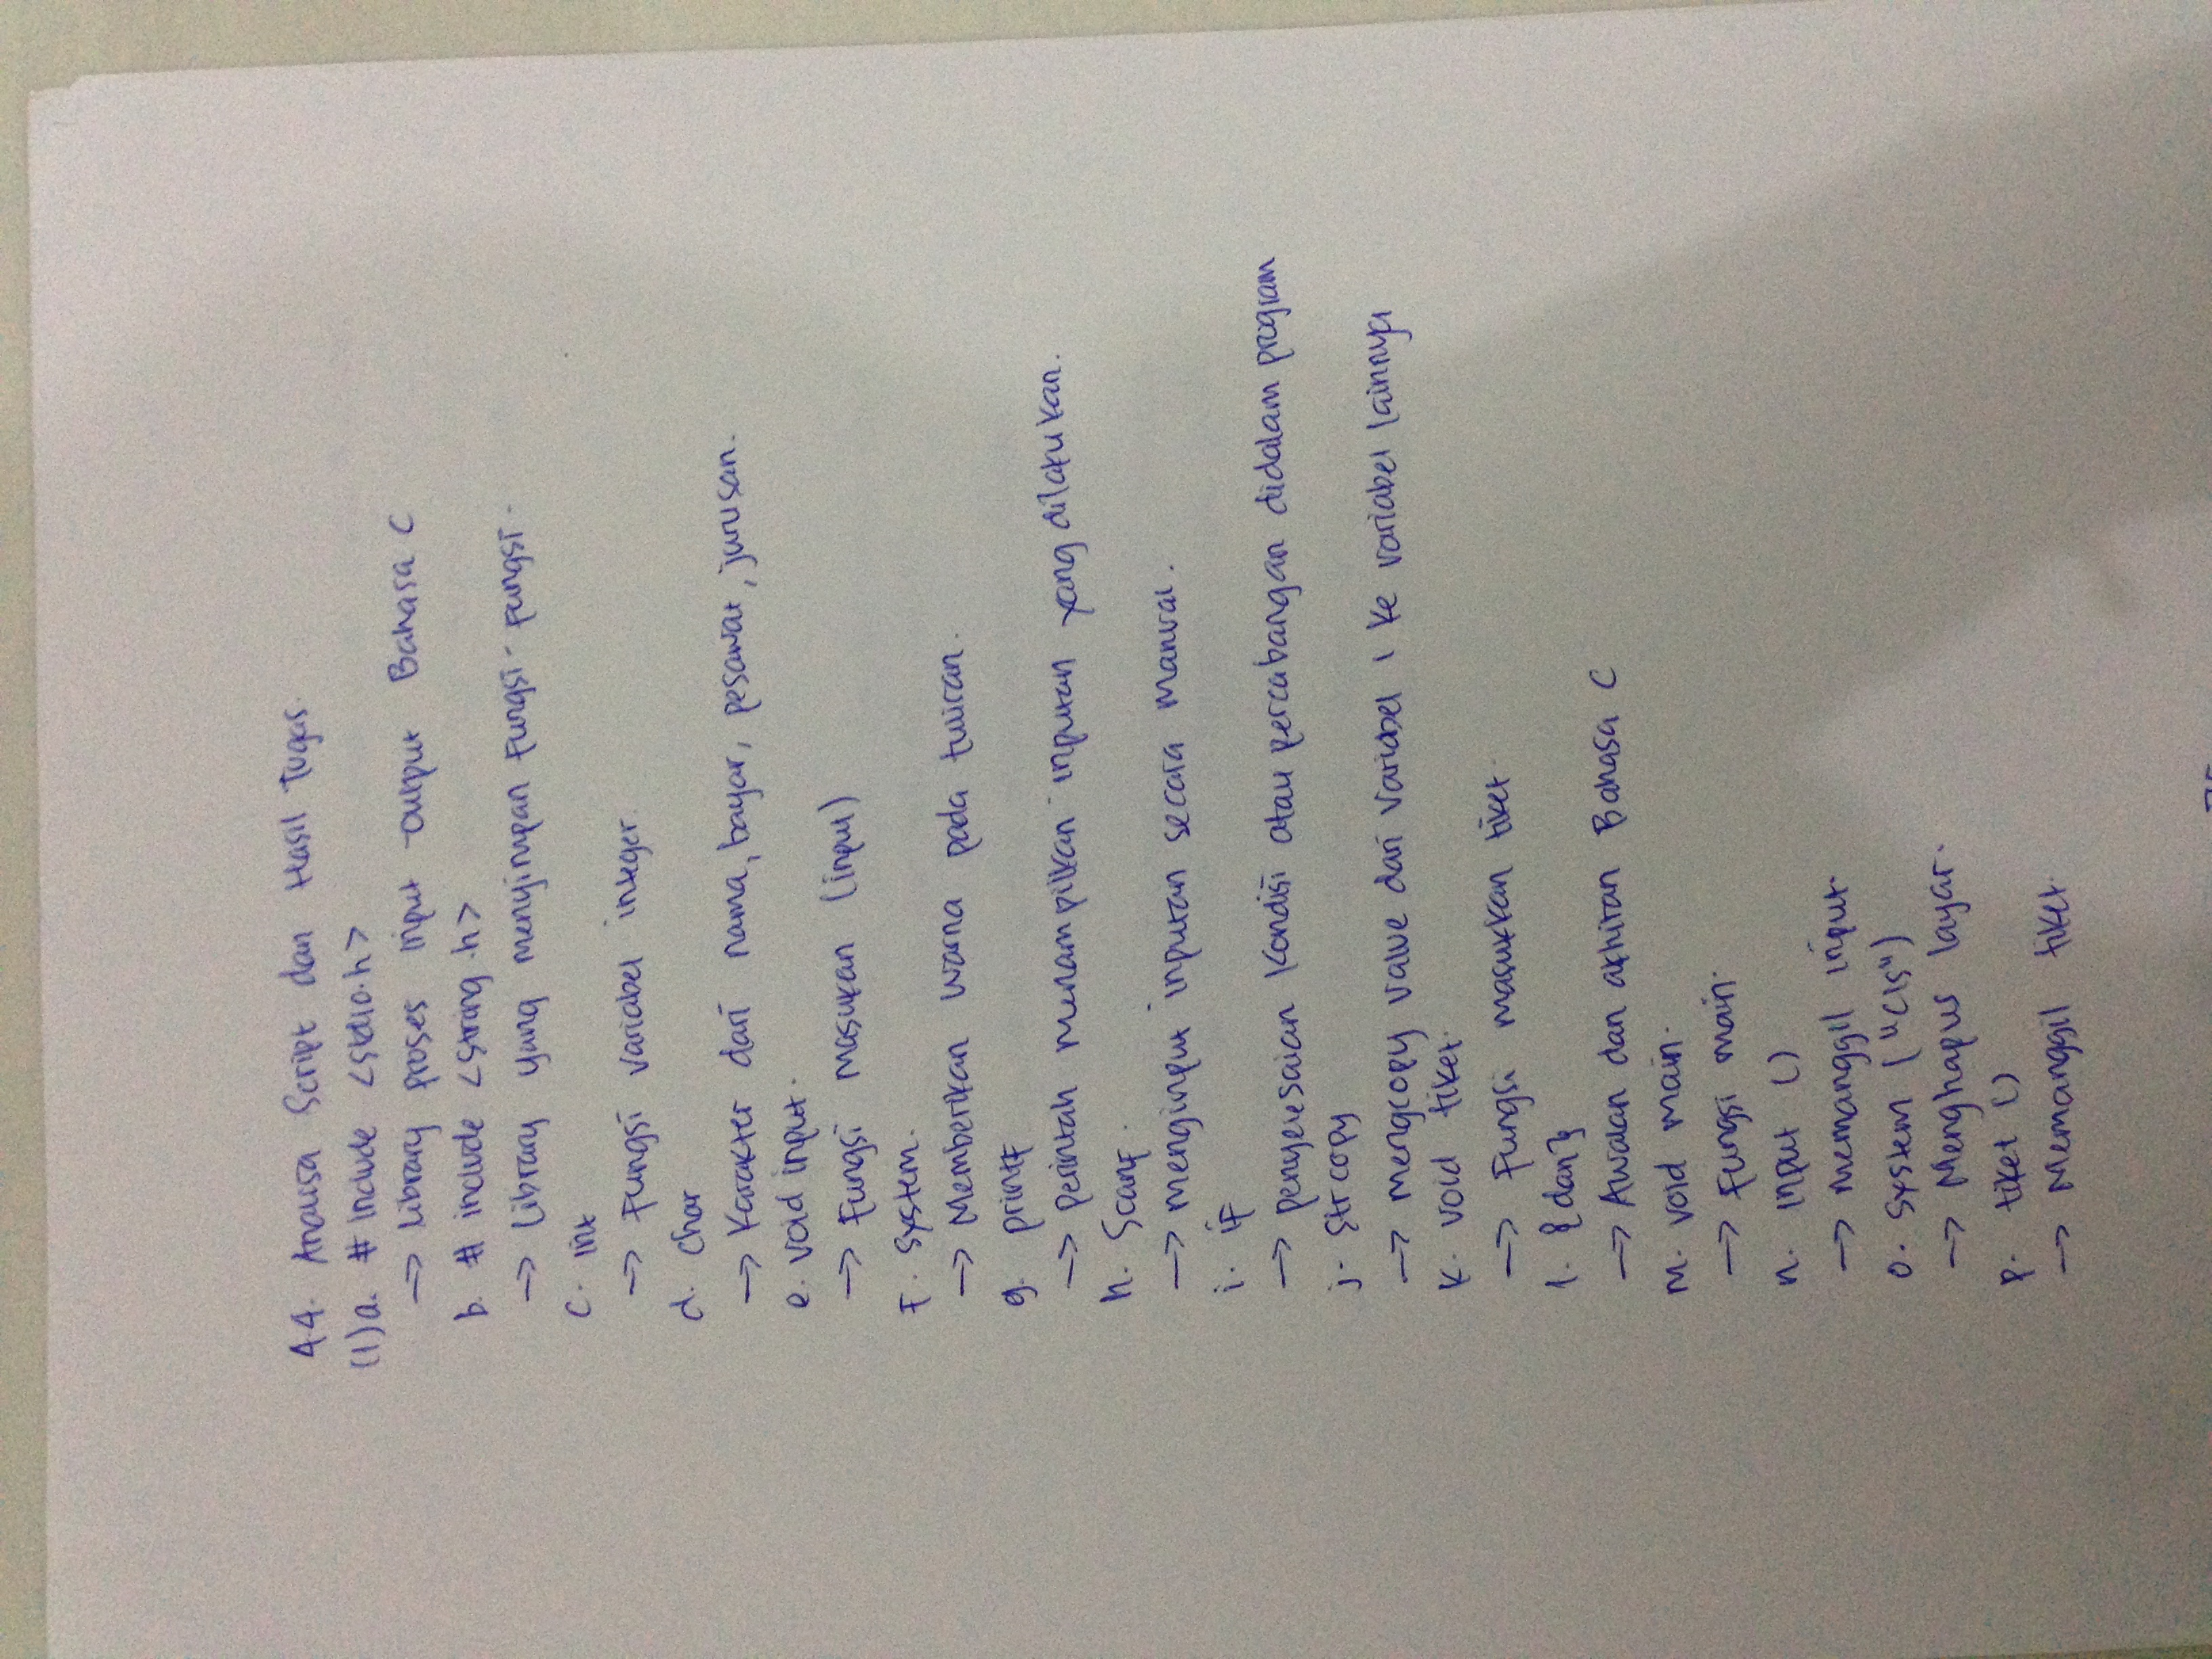 4.4. Analisa Script dan Hasil Tugas.
(1) a. # include <stdio.h>
→ library proses input - output Bahasa C
b. # include <string.h>
→ library yang menyimpan fungsi - fungsi -
c. int
→ fungsi variabel integer.
d. char
→ karakter dari nama, bayar, pesawat, jurusan.
e. void input.
→ fungsi masukan (input)
f. system.
→ Memberikan warna pada tulisan.
g. printf
→ perintah menampilkan inputan yang dilakukan.
h. Scanf.
→ menginput inputan secara manual.
i. if
→ penyelesaian kondisi atau percabangan didalam program
j. strcopy
→ mengcopy value dari variabel 1 ke variabel lainnya
k. void tiket.
→ fungsi masukkan tiket.
l. {dan}
→ Awalan dan akhiran Bahasa C
m. void main.
→ fungsi main.
n. input ()
→ memanggil input.
o. system ("cls")
→ Menghapus layar.
p. tiket ()
→ Memanggil tiket.